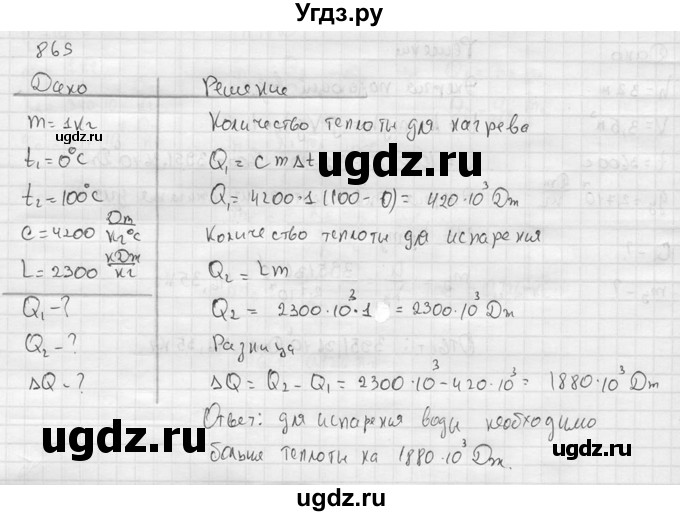 Угдз.ру
865
Дано
m = 1 кг
t₁ = 0°C
t₂ = 100°C
c = 4200 Дж/кг°C
L = 2300 кДж/кг
Q₁ - ?
Q₂ - ?
ΔQ - ?
Решение
Количество теплоты для нагрева
Q₁ = c m Δt
Q₁ = 4200·1 (100 - 0) = 420·10³ Дж
Количество теплоты дя испарения
Q₂ = Lm
Q₂ = 2300·10³·1 = 2300·10³ Дж
Разница
ΔQ = Q₂ - Q₁ = 2300·10³ - 420·10³ = 1880·10³ Дж
Ответ: для испарения води необходимо
больше теплоты на 1880·10³ Дж.
ugdz.ru
ugdz.ru
ugdz.ru
ugdz.ru
ugdz.ru
ugdz.ru
ugdz.ru
ugdz.ru